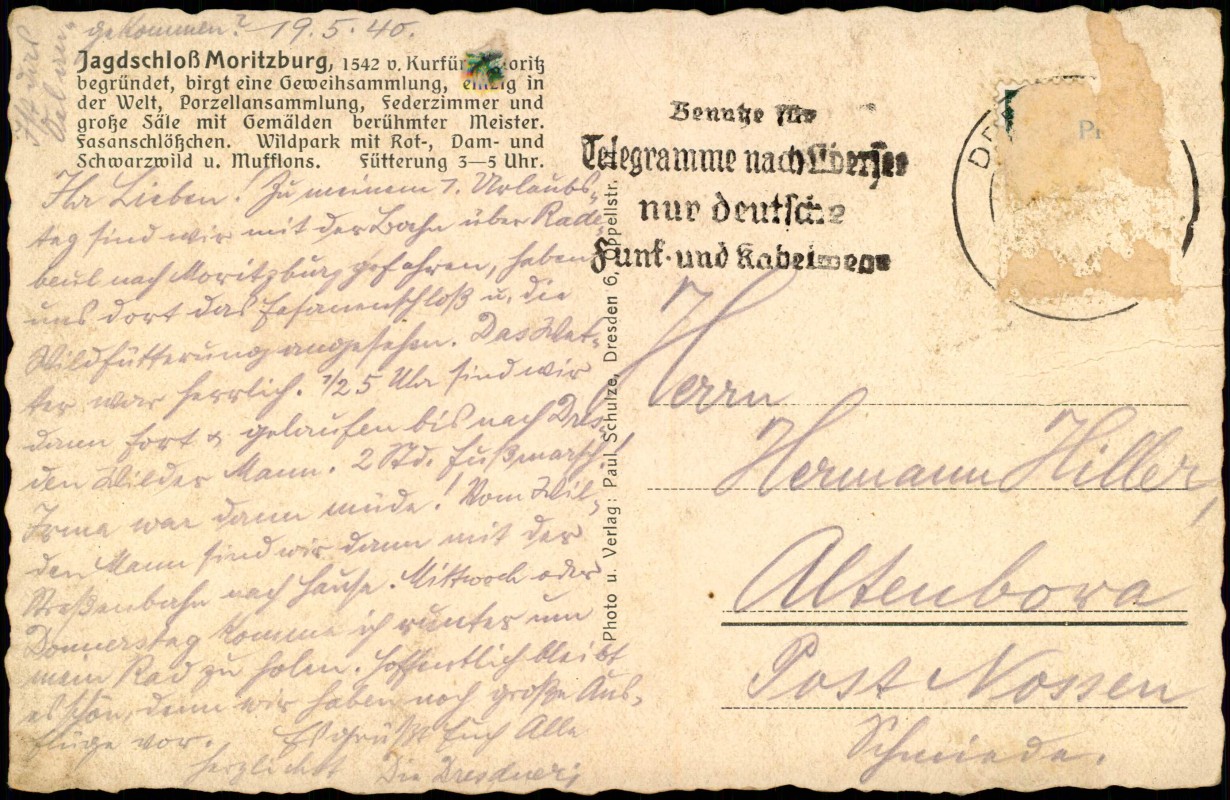 gekommen? 19.5.40.
Ist das
Jagdschloß Moritzburg, 1542 v. Kurfür oritz
begründet, birgt eine Geweihsammlung, einzig in
der Welt, Porzellansammlung, Federzimmer und
große Säle mit Gemälden berühmter Meister.
Fasanschlößchen. Wildpark mit Rot-, Dam- und
Schwarzwild u. Mufflons. Fütterung 3—5 Uhr.
Ihr Lieben! Zu meinem 1. Urlaubs-
tag sind wir mit der Bahn über Rade-
beul nach Moritzburg gefahren, haben
uns dort das Fasanenschloß u. die
Wildfütterung angesehen. Das Wet-
ter war herrlich. 1/2 5 Uhr sind wir
dann fort & gelaufen bis nach Dres-
den Wilder Mann. 2 Std. Fußmarsch!
Irma war dann müde! Vom Wil-
den Mann sind wir dann mit der
Straßenbahn nach Hause. Mittwoch oder
Donnerstag komme ich runter um
mein Rad zu holen. Hoffentlich bleibt
es schön, denn wir haben noch große Aus-
flüge vor. Es grüßt Euch Alle
herzlichst Die Dresdner
Photo u. Verlag: Paul Schulze, Dresden 6, Oppellstr.
Benutze für
Telegramme nach Übersee
nur deutsche
Funk- und Kabelwege
DRE
Herrn
Hermann Hiller,
Altenbora
Post Nossen
Schmiede.